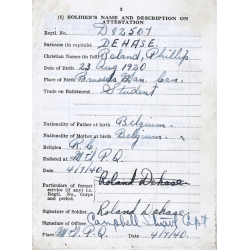 2
(1) SOLDIER'S NAME AND DESCRIPTION ON ATTESTATION
Regtl. No. D82507
Surname (in capitals) DEHASE
Christian Names (in full) Roland, Phillip
Date of Birth 23 Aug 1920
Place of Birth Bruxells Man. Can.
Trade on Enlistment Student
Nationality of Father at Birth Belgium.
Nationality of Mother at Birth Belgium.
Religion R.C.
Enlisted at Mtl P.Q.
On 4/7/40.
Particulars of former service (if any) i.e. Regtl. No., Corps and period.
Roland Dehase
Signature of Soldier Roland Dehase
Signature of Officer Campbell Stuart Capt
Place Mtl P.Q. Date 4/7/40.